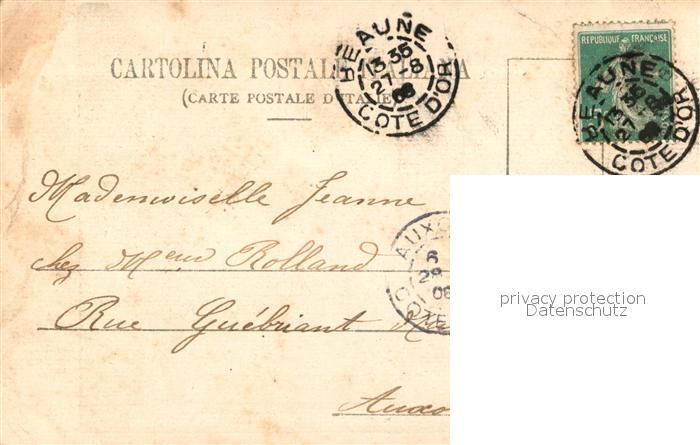 CARTOLINA POSTALE ITALIANA
(CARTE POSTALE D'ITALIE)
BEAUNE
13 35
27-8
08
COTE D'OR
REPUBLIQUE FRANÇAISE
BEAUNE
13 35
27-8
08
COTE D'OR
Mademoiselle Jeanne
chez Meur Rolland
Rue Guébriant
AUXO
6
28
08
COTE
Auxo
privacy protection
Datenschutz